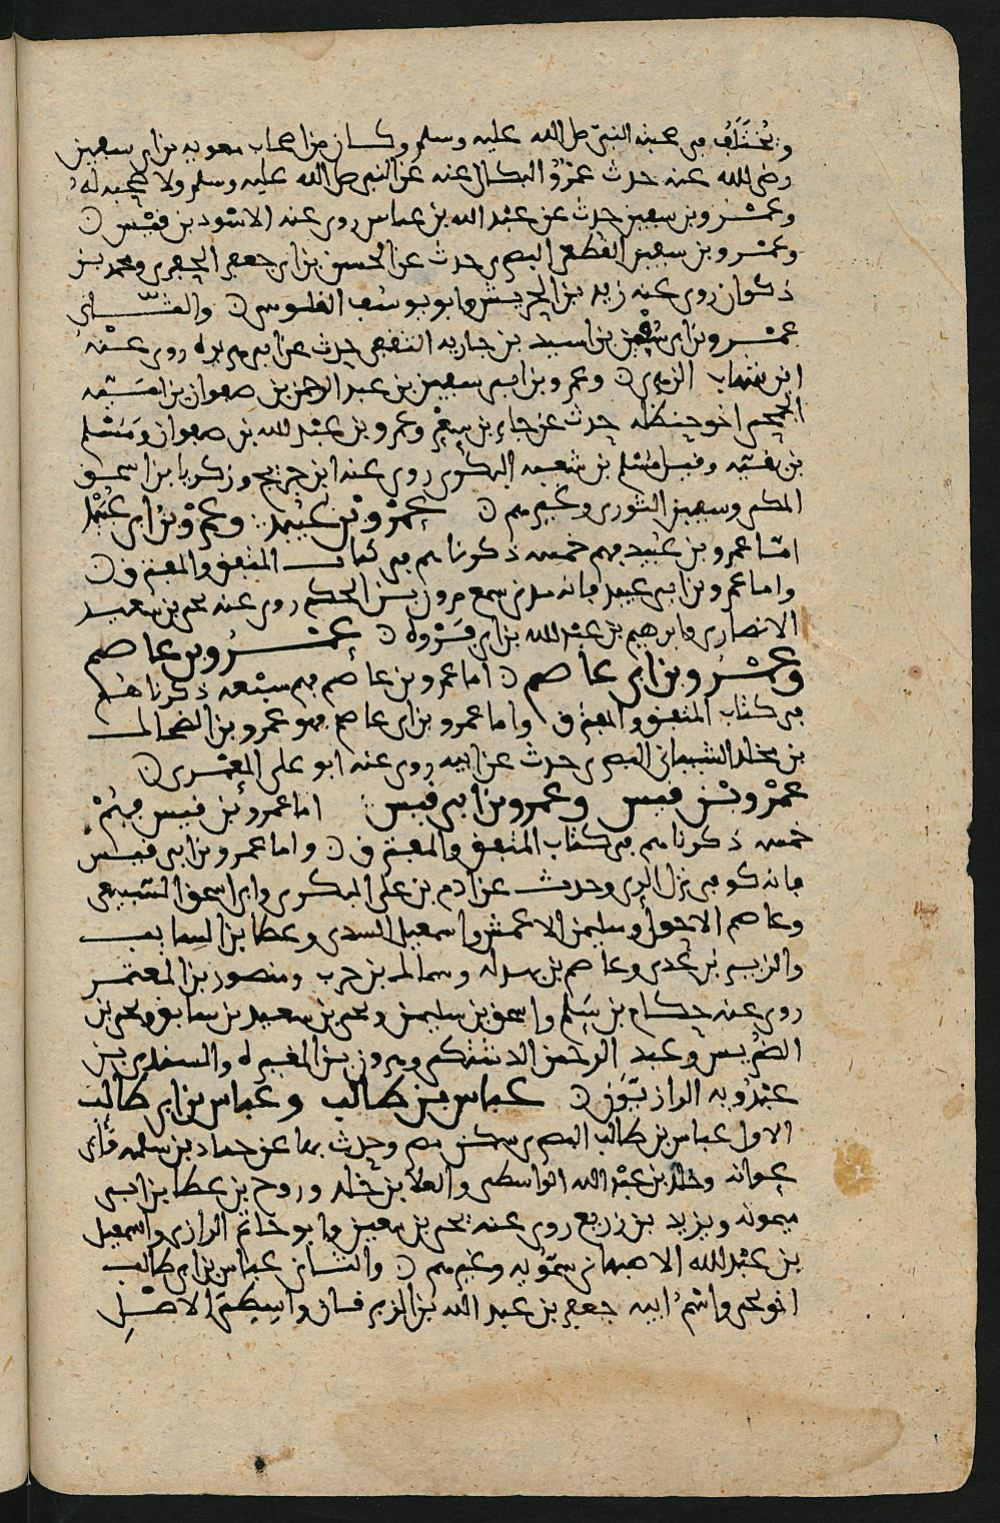 ويختلف في صحبته النبي صلى الله عليه وسلم وكان من اصحاب معويه بن ابي سفين
رضى الله عنه حدث عمرو البكالى عنه عن النبي صلى الله عليه وسلم ولا صحبه له
وعمرو بن سفين حدث عن عبد الله بن عباس روى عنه الاسود بن قيس
وعمرو بن سفين القطعى البصري حدث عن الحسن بن ابي جعفر الجفري ومحمد بن
ذكوان روى عنه زيد بن الحريش وابو يوسف القلوسى والثاني
عمرو بن ابي سفين بن اسيد بن جاريه الثقفي حدث عن ابي هريره روى عنه
ابن شهاب الزهري وعمرو بن ابي سفين بن عبد الرحمن بن صفوان بن اميه
الجمحى اخو حنظله حدث عن جابر بن سعر وعمرو بن عبد الله بن صفوان ومسلم
بن ثفنه وقيل مسلم بن شعبه البكري روى عنه ابن جريج وزكريا بن اسحق
المكى وسفين الثوري وغيرهم عمرو بن عبيد وعمرو بن ابي عبيد
اما عمرو بن عبيد فهم خمسه ذكرناهم في كتاب المتفق والمفترق
واما عمرو بن ابي عبيد فانه مدني سمع مرون بن الحكم روى عنه يحيى بن سعيد
الانصاري وابرهيم بن عبد الله بن ابي فروه عمرو بن عاصم
وعمرو بن ابي عاصم اما عمرو بن عاصم فهم سبعه ذكرناهم
في كتاب المتفق والمفترق واما عمرو بن ابي عاصم فهو عمرو بن الضحاك
بن مخلد الشيباني البصري حدث عن ابيه روى عنه ابو على المعمري
عمرو بن قيس وعمرو بن ابي قيس اما عمرو بن قيس فهم
خمسه ذكرناهم في كتاب المتفق والمفترق واما عمرو بن ابي قيس
فانه كوفى نزل الري وحدث عن ادم بن على البكري وابي اسحق السبيعى
وعاصم الاحول وسليمن الاعمش واسمعيل السدي وعطا بن السايب
والزبير بن عدي وعاصم بن بهدله وسماك بن حرب ومنصور بن المعتمر
روى عنه حكام بن سلم واسحق بن سليمن ويحيى بن سعيد بن سابق ويحيى بن
الضريس وعبد الرحمن الدشتكى وهرون بن المغيره والسندي بن
عبدويه الرازيون عباس بن طالب وعباس بن ابي طالب
الاول عباس بن طالب البصري سكن مصر وحدث بها عن حماد بن سلمه وابي
عوانه وخالد بن عبد الله الواسطى والعلا بن خالد وروح بن عطا بن ابي
ميمونه ويزيد بن زريع روى عنه يحيى بن معين وابو حاتم الرازي واسمعيل
بن عبد الله الاصبهاني سمويه وغيرهم والثاني عباس بن ابي طالب
اخو يحيى واسم ابيه جعفر بن عبد الله بن الزبرقان واسطى الاصل